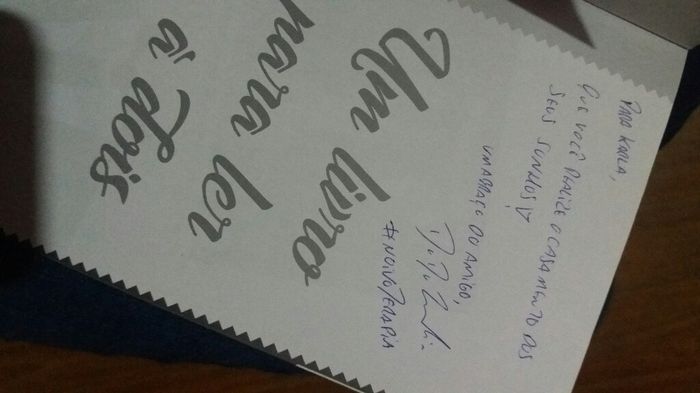 PARA KARLA,
QUE VOCÊ REALIZE O CASAMENTO DOS
SEUS SONHOS!
UM ABRAÇO DO AMIGO,
#NOIVOTERAPIA
Um livro
para ler
à dois